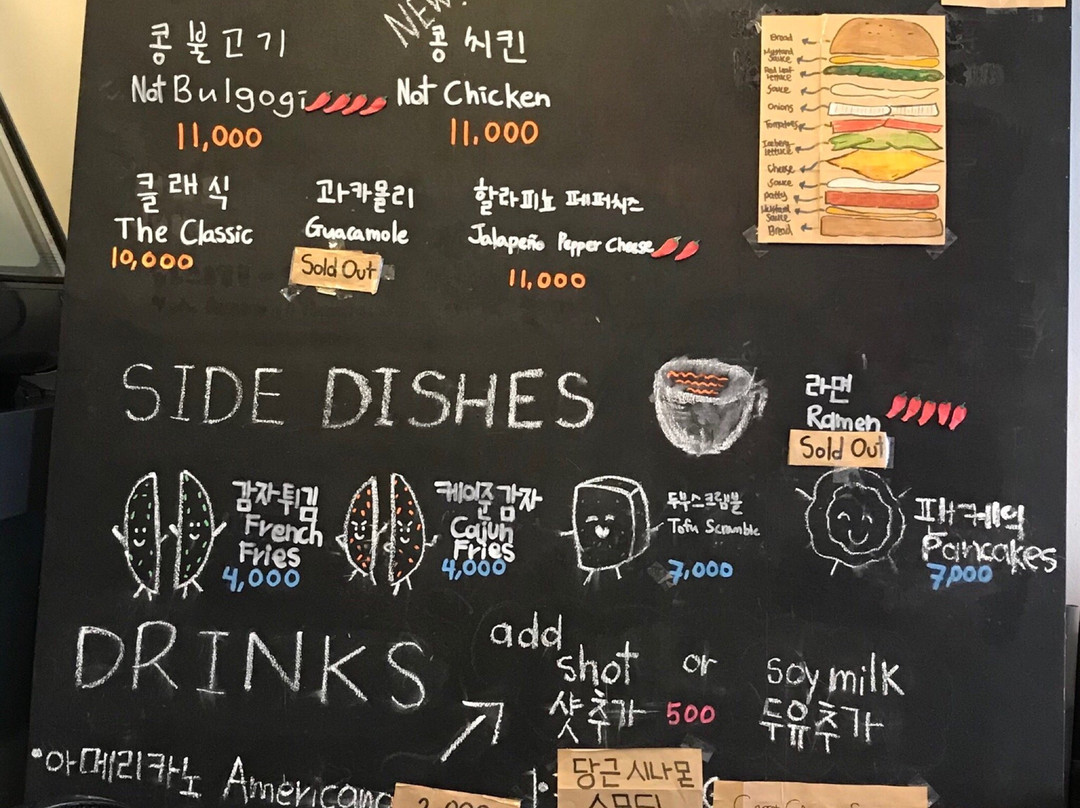 NEW!
콩불고기
Not Bulgogi
11,000
콩치킨
Not Chicken
11,000
Bread
Mustard
Sauce
Red leaf
lettuce
Sauce
Onions
Tomatoes
Iceberg
lettuce
Cheese
Sauce
patty
Mustard
Sauce
Bread
클래식
The Classic
10,000
과카몰리
Guacamole
Sold Out
할라피뇨 페퍼치즈
Jalapeño Pepper Cheese
11,000
SIDE DISHES
라면
Ramen
Sold Out
감자튀김
French
Fries
4,000
케이준감자
Cajun
Fries
4,000
두부스크램블
Tofu Scramble
7,000
팬케익
Pancakes
7,000
DRINKS
add
shot or soy milk
샷추가 500 두유추가
•아메리카노 Americano
당근 시나몬